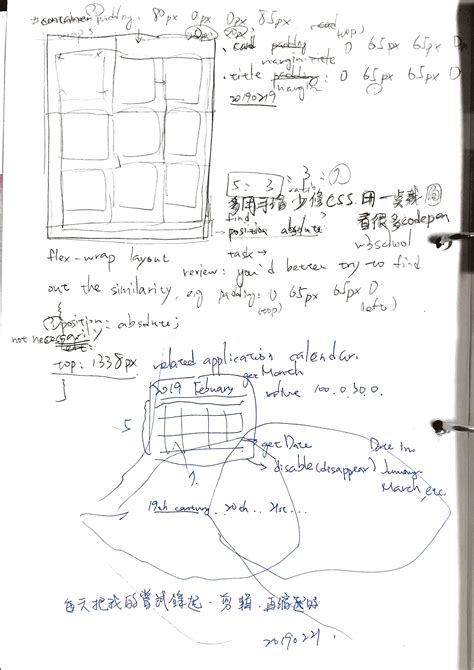 #container padding: 80px 0px 0px 85px
wrap
(top)
· card padding 0 65px 65px 0px
margin-title
· title padding: 0 65px 65px 0
margin
20190219
5 : 3 : 3
ratio
多用手繪 少修CSS 用一
find
position absolute
看很多codepen
w3school
flex-wrap layout
task→
review: you'd better try to find
out the similarity, eg padding: 0 65px 65px 0
(top) (left)
{
position: absolute;
not necessarily
top: 1338px
}
related application calendar.
getMonth
2019 Febuary
value 100.0.300.
5
getDate
disable(disappear)
7.
March, etc
19th century... 20th... 21st...
每天把我的嘗試錄起、剪輯、再
20190221.